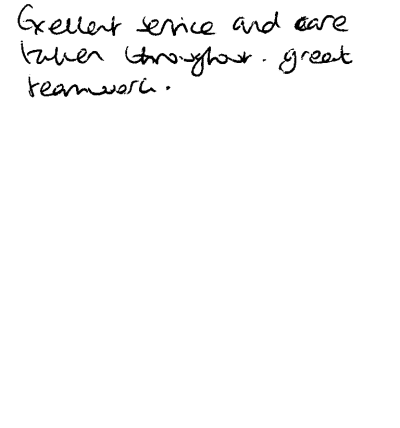 Exellent service and care
taken throughout. great
teamwork.